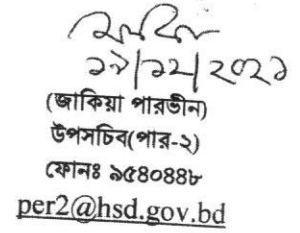 ১৯/১২/২০২১
(জাকিয়া পারভীন)
উপসচিব(পার-২)
ফোনঃ ৯৫৪০৪৪৮
per2@hsd.gov.bd